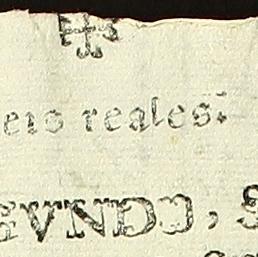 eis reales.
GVNDO, S